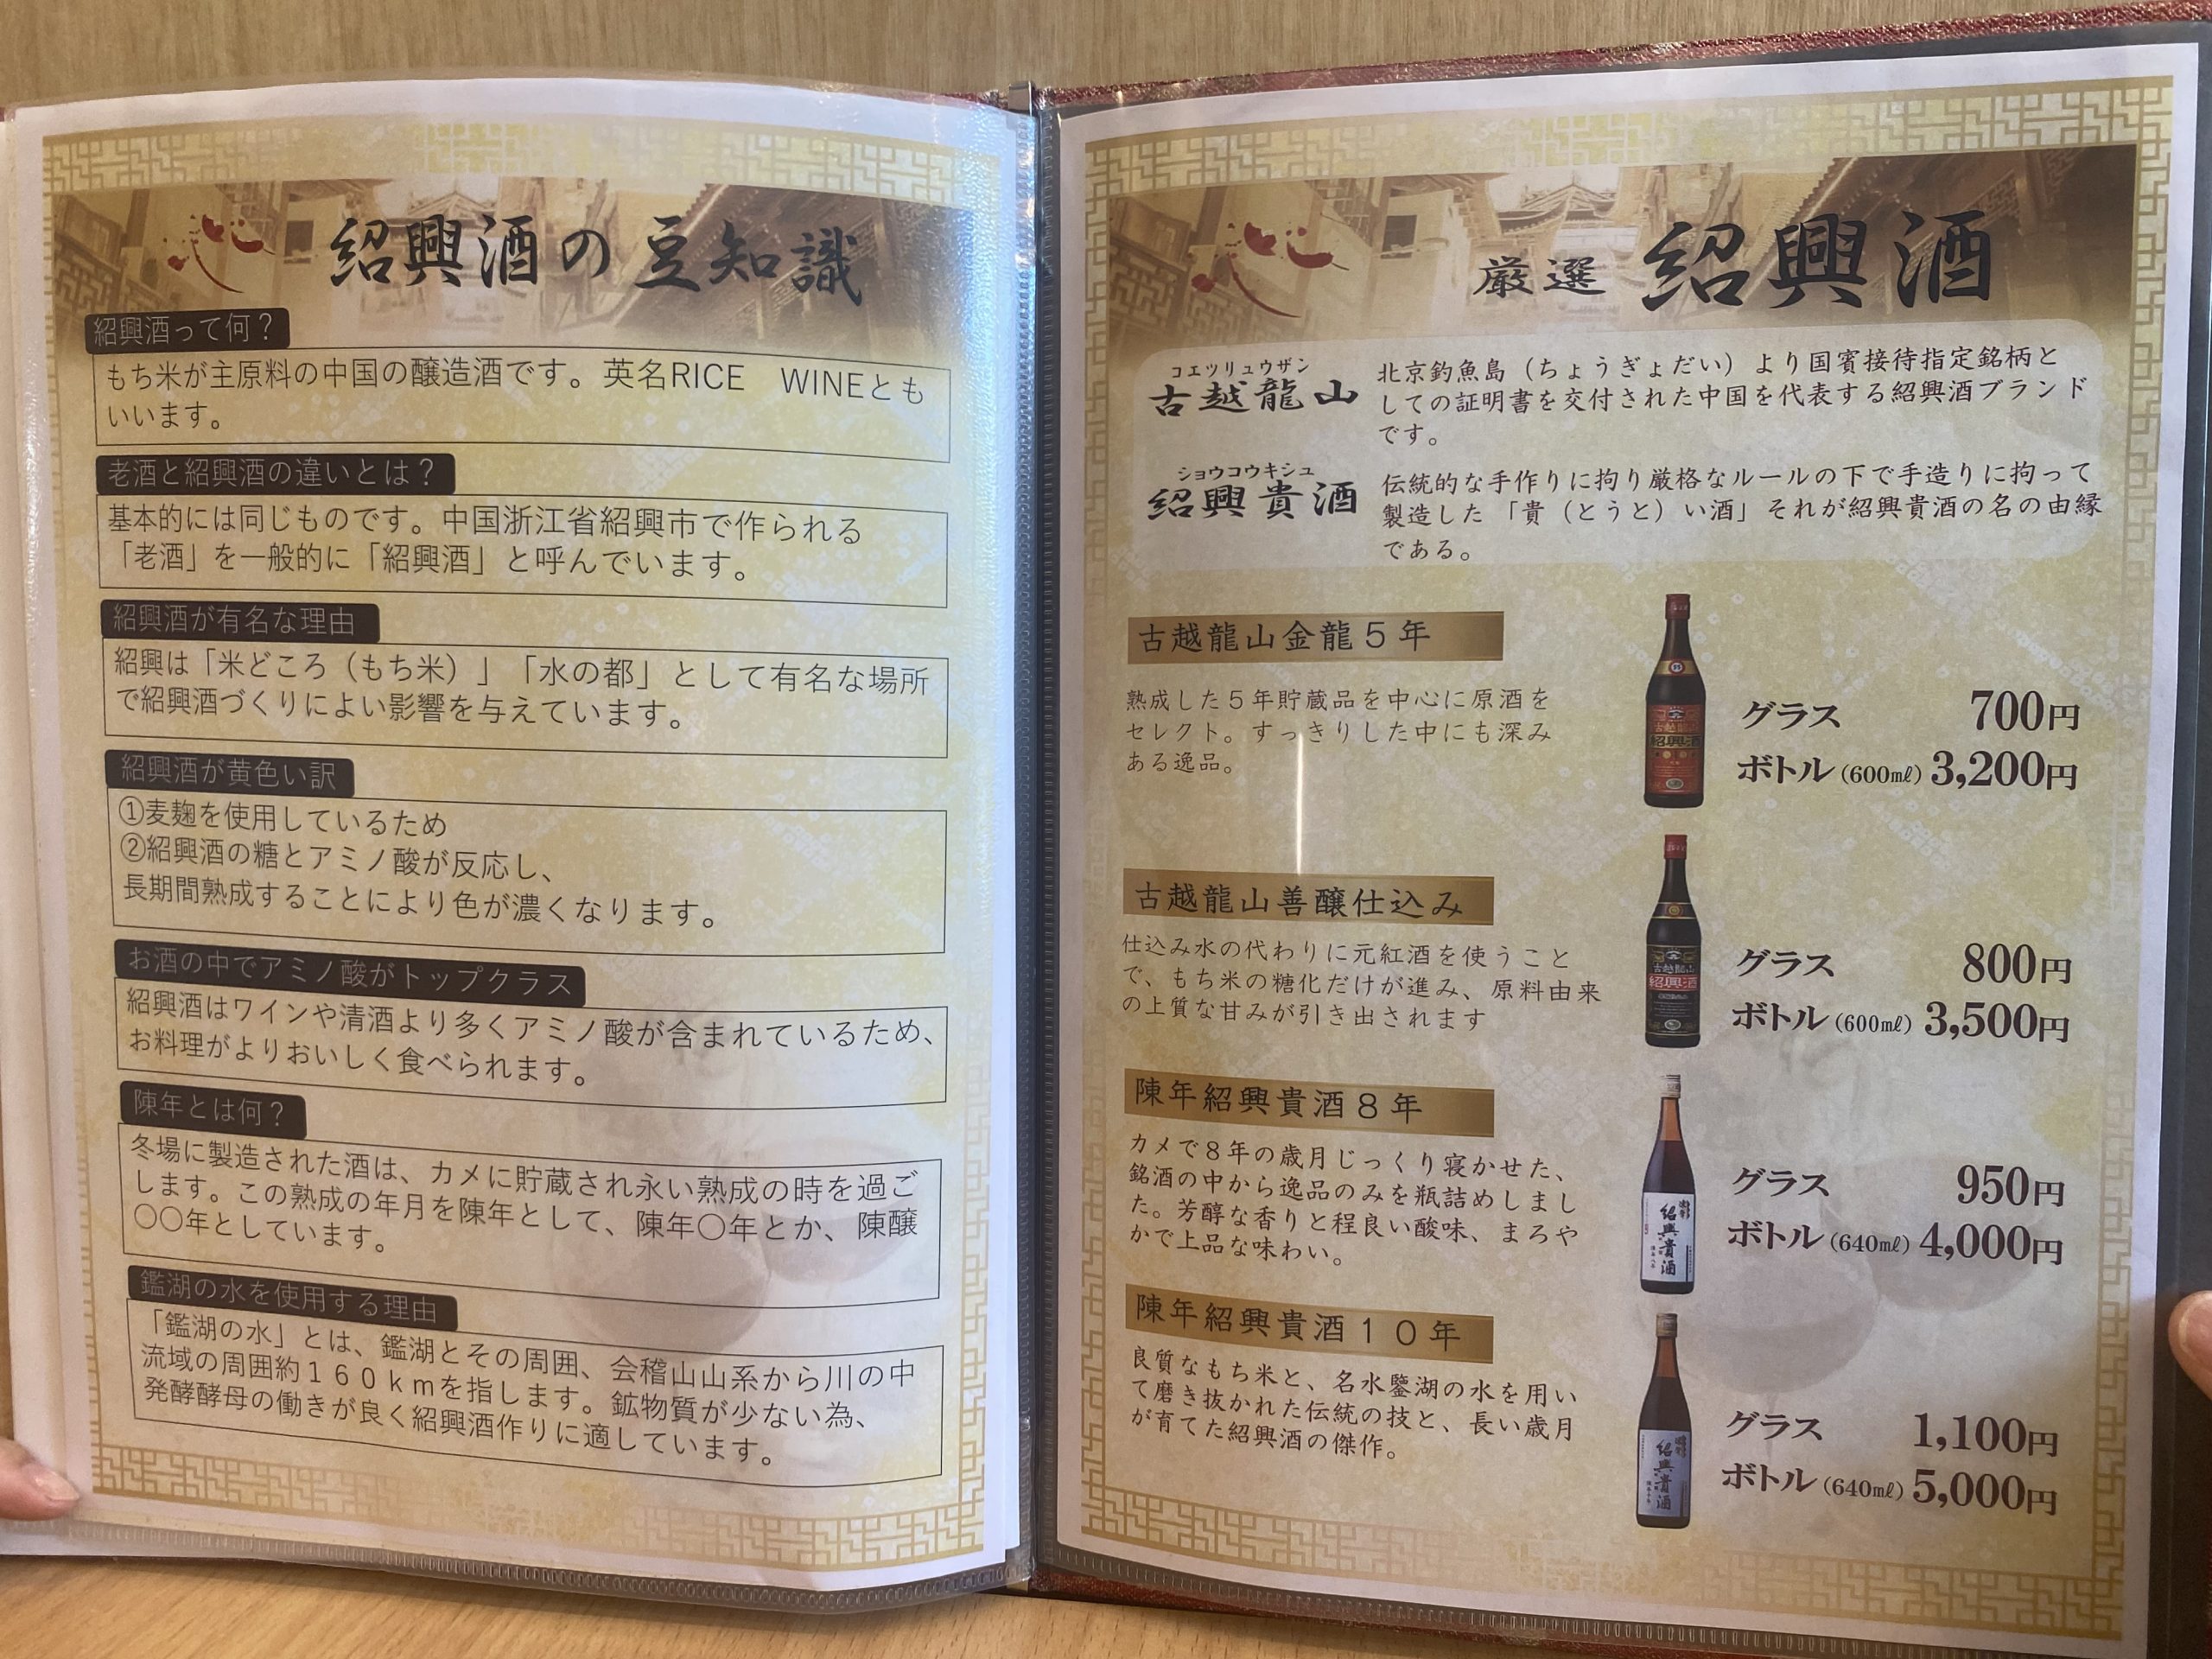 紹興酒の豆知識
紹興酒って何？
もち米が主原料の中国の醸造酒です。英名RICE　WINEとも
いいます。
老酒と紹興酒の違いとは？
基本的には同じものです。中国浙江省紹興市で作られる
「老酒」を一般的に「紹興酒」と呼んでいます。
紹興酒が有名な理由
紹興は「米どころ（もち米）」「水の都」として有名な場所
で紹興酒づくりによい影響を与えています。
紹興酒が黄色い訳
①麦麹を使用しているため
②紹興酒の糖とアミノ酸が反応し、
長期間熟成することにより色が濃くなります。
お酒の中でアミノ酸がトップクラス
紹興酒はワインや清酒より多くアミノ酸が含まれているため、
お料理がよりおいしく食べられます。
陳年とは何？
冬場に製造された酒は、カメに貯蔵され永い熟成の時を過ご
します。この熟成の年月を陳年として、陳年〇年とか、陳醸
〇〇年としています。
鑑湖の水を使用する理由
「鑑湖の水」とは、鑑湖とその周囲、会稽山山系から川の中
流域の周囲約１６０ｋｍを指します。鉱物質が少ない為、
発酵酵母の働きが良く紹興酒作りに適しています。
厳選 紹興酒
コエツリュウザン
古越龍山
北京釣魚島（ちょうぎょだい）より国賓接待指定銘柄と
しての証明書を交付された中国を代表する紹興酒ブランド
です。
ショウコウキシュ
紹興貴酒
伝統的な手作りに拘り厳格なルールの下で手造りに拘って
製造した「貴（とうと）い酒」それが紹興貴酒の名の由縁
である。
古越龍山金龍５年
熟成した５年貯蔵品を中心に原酒を
セレクト。すっきりした中にも深み
ある逸品。
グラス 700円
ボトル（600㎖）3,200円
古越龍山善醸仕込み
仕込み水の代わりに元紅酒を使うこと
で、もち米の糖化だけが進み、原料由来
の上質な甘みが引き出されます
古越龍山
紹興酒
グラス 800円
ボトル（600㎖）3,500円
陳年紹興貴酒８年
カメで８年の歳月じっくり寝かせた、
銘酒の中から逸品のみを瓶詰めしまし
た。芳醇な香りと程良い酸味、まろや
かで上品な味わい。
紹興貴酒
グラス 950円
ボトル（640㎖）4,000円
陳年紹興貴酒１０年
良質なもち米と、名水鑒湖の水を用い
て磨き抜かれた伝統の技と、長い歳月
が育てた紹興酒の傑作。
紹興貴酒
グラス 1,100円
ボトル（640㎖）5,000円